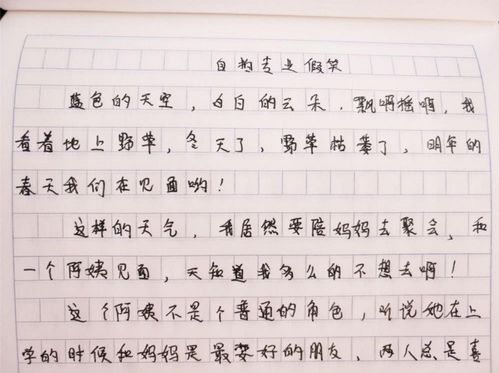 自的专业假笑
蓝色的天空，白白的云朵，飘啊摇啊，我
看着地上野草，冬天了，野草枯萎了，明年的
春天我们在见面哟！
这样的天气，我居然要陪妈妈去聚会，和
一个阿姨见面，天知道我多么的不想去啊！
这个阿姨不是个普通的角色，听说她在上
学的时候和妈妈是最要好的朋友，两人总是喜